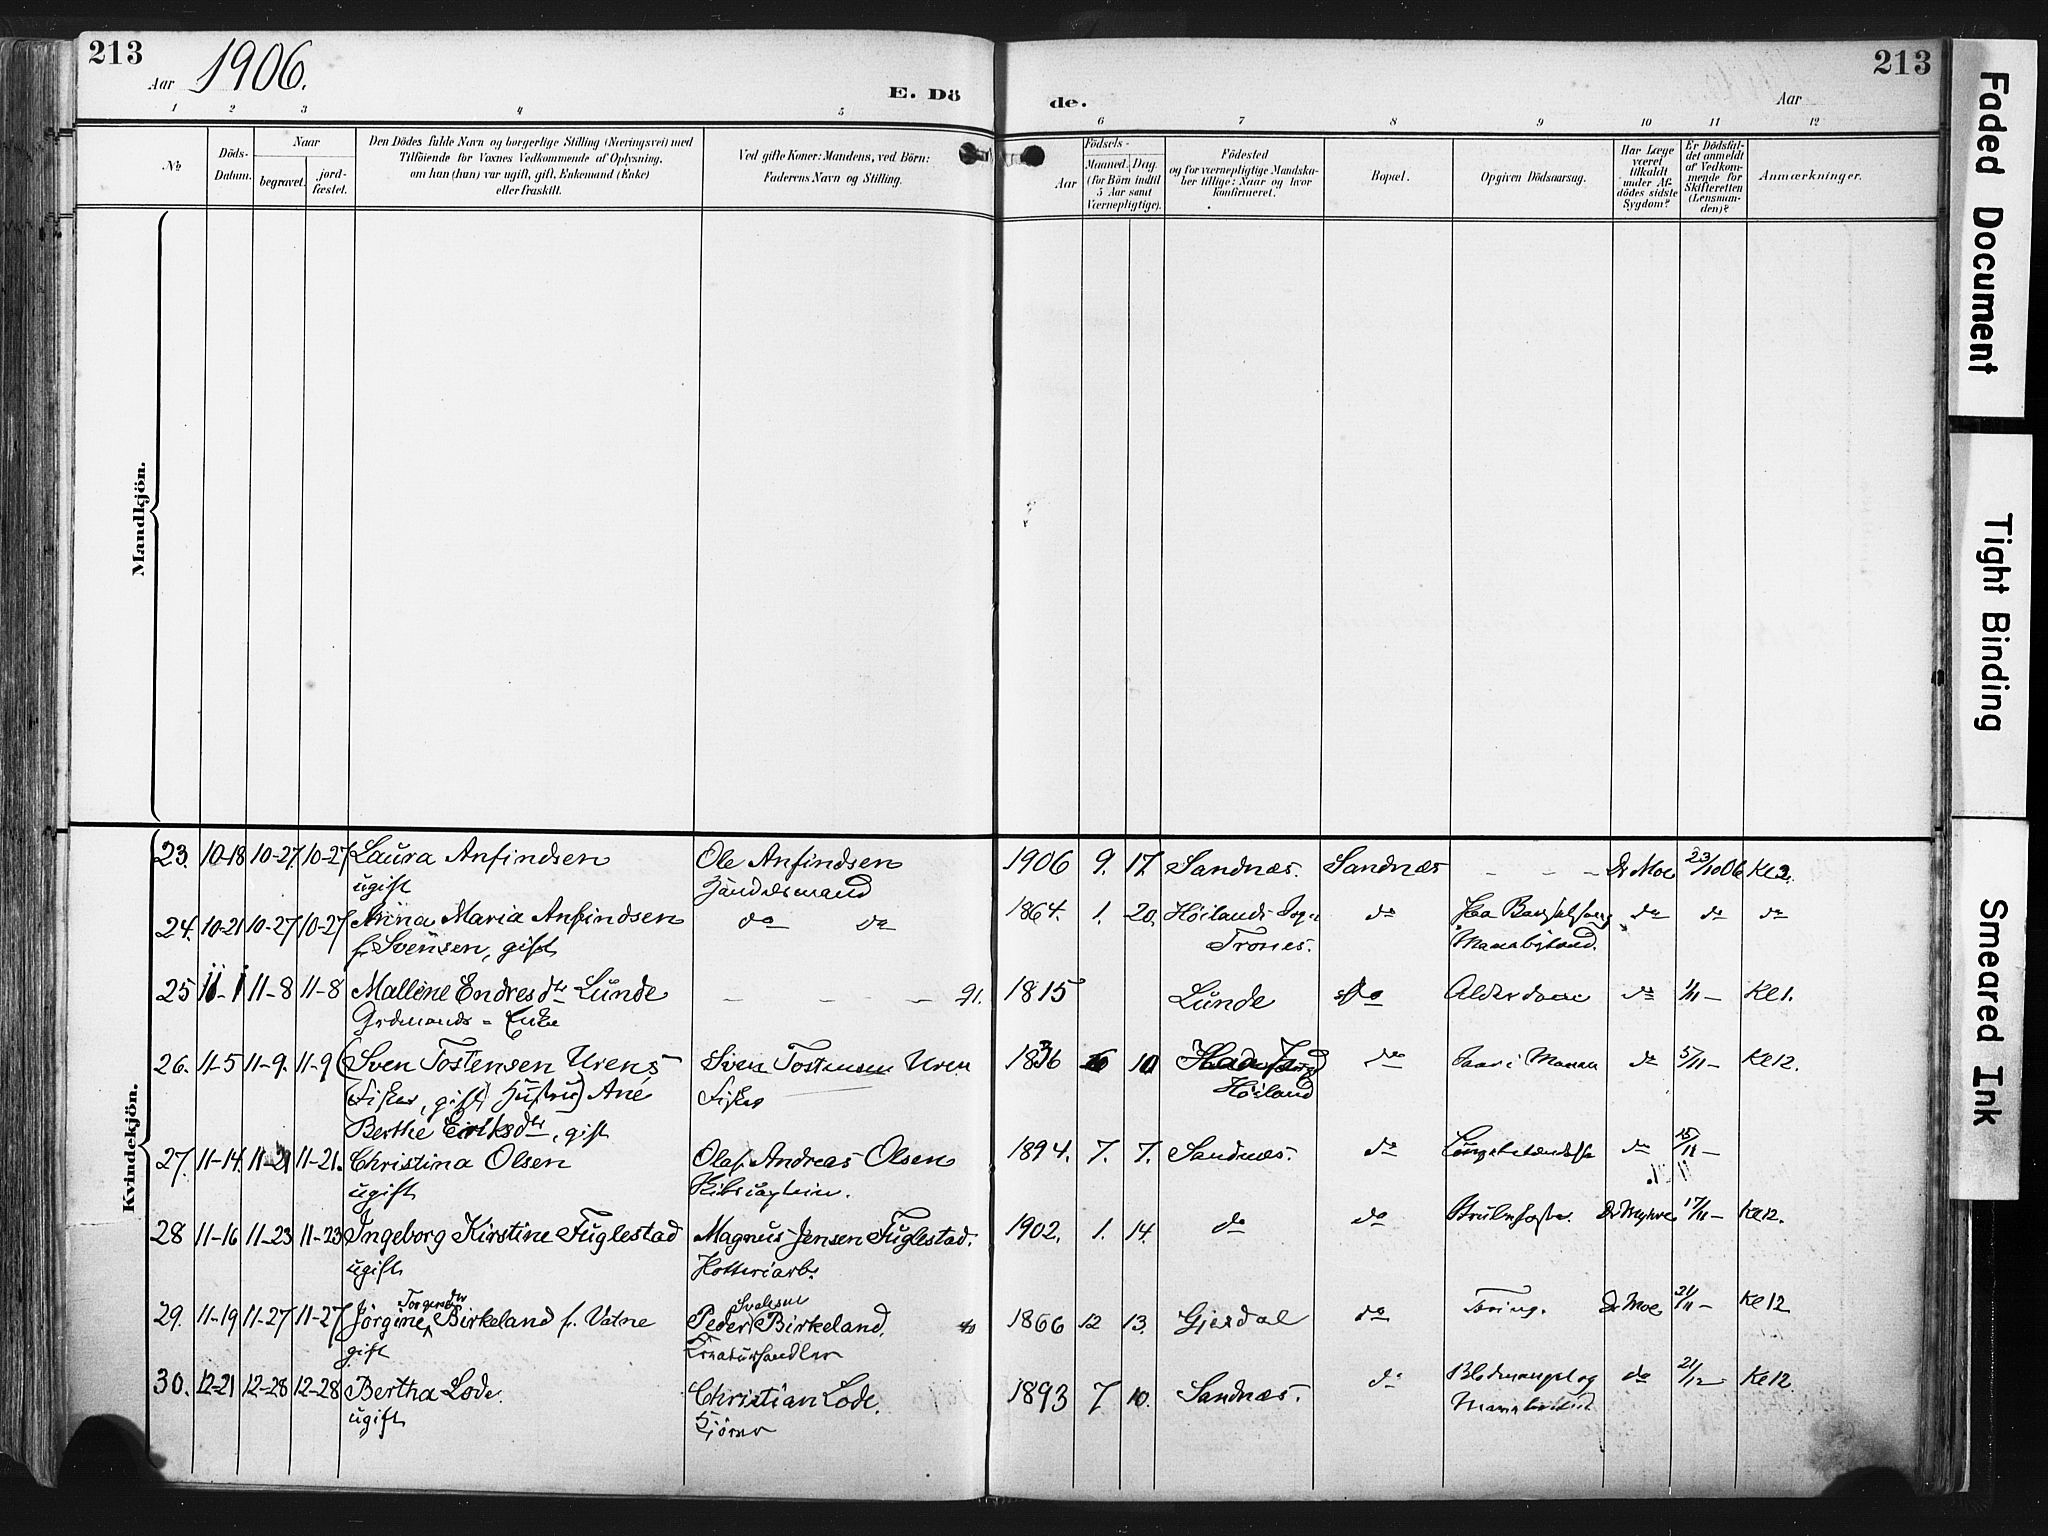 213
Aar 1906.
E. Dö
de.
Aar
213
1 2 3 4 5 6 7 8 9 10 11 12
No.
Döds-
Datum.
Naar
begravet.
jord-
fæstet.
Den Dödes fulde Navn og borgerlige Stilling (Næringsvei) med
Tilföiende for Voxnes Vedkommende af Oplysning,
om han (hun) var ugift, gift, Enkemand (Enke)
eller fraskilt.
Ved gifte Koner: Mandens, ved Börn:
Faderens Navn og Stilling.
Födsels-
Aar
Maaned. Dag.
(for Börn indtil
5 Aar samt
Værnepligtige).
Födested
og for værnepligtige Mandska-
ber tillige: Naar og hvor
konfirmeret.
Bopæl.
Opgiven Dödsaarsag.
Har Læge
været
tilkaldt
under Af-
dödes sidste
Sygdom?
Er Dödsfal-
det anmeldt
af Vedkom-
mende for
Skifteretten
(Lensman-
den)?
Anmærkninger.
Mandkjön.
Kvindekjön.
23. 10-18 10-27 10-27 Laura Anfindsen Ole Anfindsen 1906 9. 17. Sandnæs. Sandnæs - - - Dr Moe 23/10 06 Kl 2.
ugift Handelsmand
24. 10-21 10-27 10-27 Anna Maria Anfindsen do do 1864. 1. 20. Höilands Sogn do do do do
f. Svensen, gift Trones.
25 11-1 11-8 11-8 Malline Endresdtr Lunde - - - 91. 1815 Lunde do Alderdom do 1/11 - Kl 1.
Grdmands - Enke
26. 11-5 11-9. 11-9 (Sven Tostensen Urens Sven Tostensen Uren 1836 6 10 do Saar i Maven do 5/11 - Kl 12.
Fisker, gift Hustru) Ane Fisker Höiland
Berthe Eriksdtr, gift
27. 11-14. 11-21 11-21. Christina Olsen Olaf Andreas Olsen 1894. 7. 7. Sandnæs. do do 15/11 -
ugift
28 11-16 11-23 11-23 Ingeborg Kirstine Fuglestad Magnus Jensen Fuglestad. 1902. 1. 14. do do Dr Myhre 17/11 - Kl 12.
ugift Potteriarb.
Torgersdtr Svalesen
29. 11-19 11-27 11-27 Jörgine Birkeland f. Vatne Peder Birkeland, 40 1866 12 13. Gjesdal do Tæring. Dr Moe 21/11 - Kl 12
gift Kreaturhandler
30. 12-21 12-28 12-28 Bertha Lode. Christian Lode. 1893 7 10. Sandnæs. do Blodmangel og do 21/12 Kl 12.
ugift Kjörer
Faded Document
Tight Binding
Smeared Ink